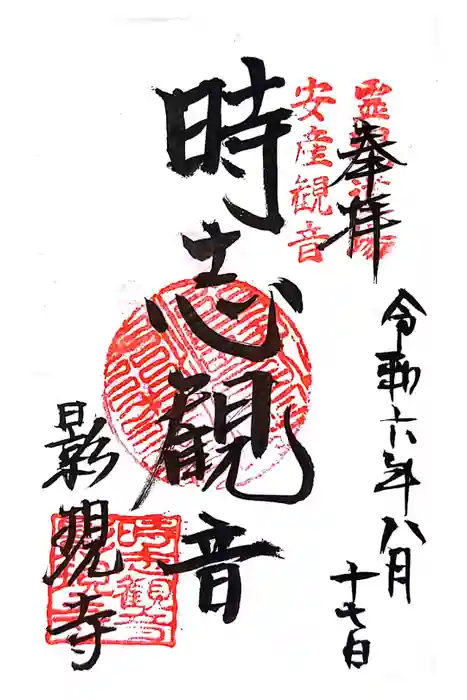 奉拝
安産観音
令和六年八月
十七日
時志観音
影現寺